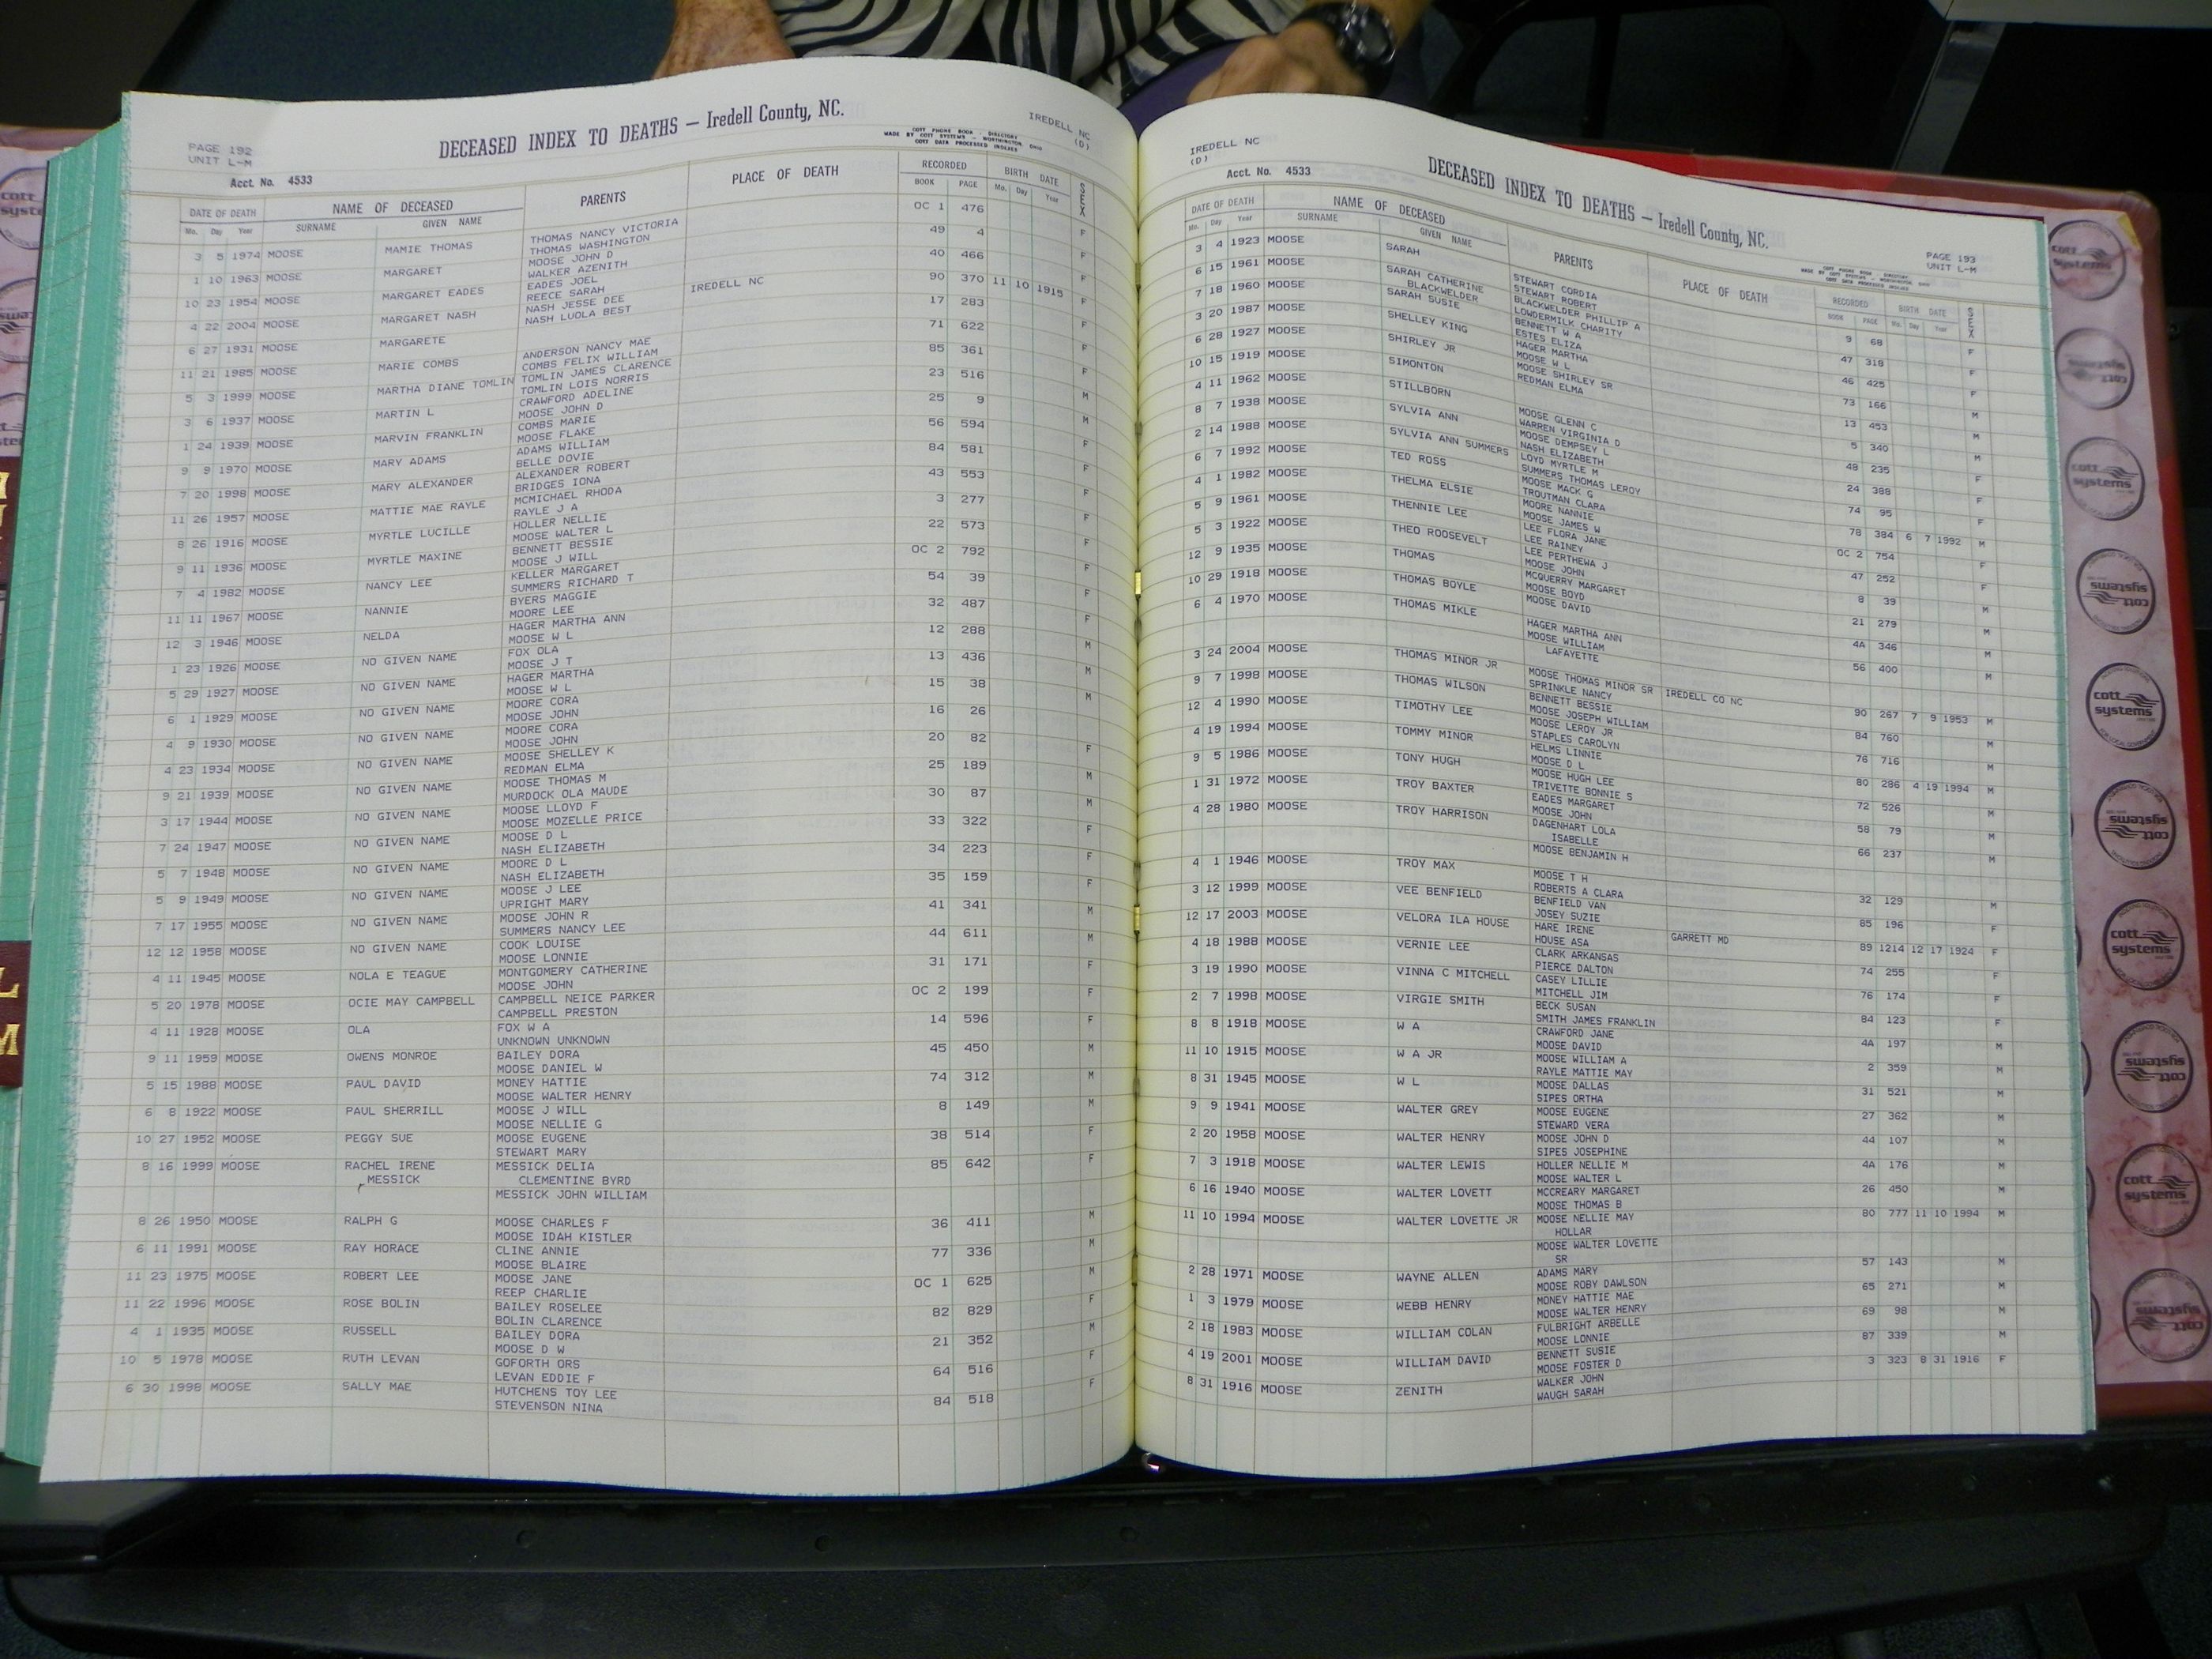 PAGE 192
UNIT L-M
DECEASED INDEX TO DEATHS — Iredell County, NC.
IREDELL NC
(D)
COTT PHONE BOOK - DIRECTORY
MADE BY COTT SYSTEMS - WORTHINGTON, OHIO
COTT DATA PROCESSED INDEXES
Acct. No. 4533
DATE OF DEATH NAME OF DECEASED PARENTS PLACE OF DEATH RECORDED BIRTH DATE SEX
Mo. Day Year SURNAME GIVEN NAME BOOK PAGE Mo. Day Year
3 5 1974 MOOSE MAMIE THOMAS THOMAS NANCY VICTORIA OC 1 476 F
THOMAS WASHINGTON
1 10 1963 MOOSE MARGARET MOOSE JOHN D 49 4 F
WALKER AZENITH
10 23 1954 MOOSE MARGARET EADES EADES JOEL 40 466 F
REECE SARAH
4 22 2004 MOOSE MARGARET NASH NASH JESSE DEE IREDELL NC 90 370 11 10 1915 F
NASH LUOLA BEST
6 27 1931 MOOSE MARGARETE 17 283 F
11 21 1985 MOOSE MARIE COMBS ANDERSON NANCY MAE 71 622 F
COMBS FELIX WILLIAM
5 3 1999 MOOSE MARTHA DIANE TOMLIN TOMLIN JAMES CLARENCE 85 361 F
TOMLIN LOIS NORRIS
3 6 1937 MOOSE MARTIN L CRAWFORD ADELINE 23 516 M
MOOSE JOHN D
1 24 1939 MOOSE MARVIN FRANKLIN COMBS MARIE 25 9 M
MOOSE FLAKE
9 9 1970 MOOSE MARY ADAMS ADAMS WILLIAM 56 594 F
BELLE DOVIE
7 20 1998 MOOSE MARY ALEXANDER ALEXANDER ROBERT 84 581 F
BRIDGES IONA
11 26 1957 MOOSE MATTIE MAE RAYLE MCMICHAEL RHODA 43 553 F
RAYLE J A
8 26 1916 MOOSE MYRTLE LUCILLE HOLLER NELLIE 3 277 F
MOOSE WALTER L
9 11 1936 MOOSE MYRTLE MAXINE BENNETT BESSIE 22 573 F
MOOSE J WILL
7 4 1982 MOOSE NANCY LEE KELLER MARGARET OC 2 792 F
SUMMERS RICHARD T
11 11 1967 MOOSE NANNIE BYERS MAGGIE 54 39 F
MOORE LEE
12 3 1946 MOOSE NELDA HAGER MARTHA ANN 32 487 F
MOOSE W L
1 23 1926 MOOSE NO GIVEN NAME FOX OLA 12 288 M
MOOSE J T
5 29 1927 MOOSE NO GIVEN NAME HAGER MARTHA 13 436 M
MOOSE W L
6 1 1929 MOOSE NO GIVEN NAME MOORE CORA 15 38 M
MOOSE JOHN
4 9 1930 MOOSE NO GIVEN NAME MOORE CORA 16 26
MOOSE JOHN
4 23 1934 MOOSE NO GIVEN NAME MOOSE SHELLEY K 20 82 F
REDMAN ELMA
9 21 1939 MOOSE NO GIVEN NAME MOOSE THOMAS M 25 189 M
MURDOCK OLA MAUDE
3 17 1944 MOOSE NO GIVEN NAME MOOSE LLOYD F 30 87 M
MOOSE MOZELLE PRICE
7 24 1947 MOOSE NO GIVEN NAME MOOSE D L 33 322 F
NASH ELIZABETH
5 7 1948 MOOSE NO GIVEN NAME MOORE D L 34 223 F
NASH ELIZABETH
5 9 1949 MOOSE NO GIVEN NAME MOOSE J LEE 35 159 F
UPRIGHT MARY
7 17 1955 MOOSE NO GIVEN NAME MOOSE JOHN R 41 341 M
SUMMERS NANCY LEE
12 12 1958 MOOSE NO GIVEN NAME COOK LOUISE 44 611 M
MOOSE LONNIE
4 11 1945 MOOSE NOLA E TEAGUE MONTGOMERY CATHERINE 31 171 F
MOOSE JOHN
5 20 1978 MOOSE OCIE MAY CAMPBELL CAMPBELL NEICE PARKER OC 2 199 F
CAMPBELL PRESTON
4 11 1928 MOOSE OLA FOX W A 14 596 F
UNKNOWN UNKNOWN
9 11 1959 MOOSE OWENS MONROE BAILEY DORA 45 450 M
MOOSE DANIEL W
5 15 1988 MOOSE PAUL DAVID MONEY HATTIE 74 312 M
MOOSE WALTER HENRY
6 8 1922 MOOSE PAUL SHERRILL MOOSE J WILL 8 149 M
MOOSE NELLIE G
10 27 1952 MOOSE PEGGY SUE MOOSE EUGENE 38 514 F
STEWART MARY
8 16 1999 MOOSE RACHEL IRENE MESSICK DELIA 85 642 F
MESSICK CLEMENTINE BYRD
MESSICK JOHN WILLIAM
8 26 1950 MOOSE RALPH G MOOSE CHARLES F 36 411 M
MOOSE IDAH KISTLER
6 11 1991 MOOSE RAY HORACE CLINE ANNIE 77 336 M
MOOSE BLAIRE
11 23 1975 MOOSE ROBERT LEE MOOSE JANE OC 1 625 M
REEP CHARLIE
11 22 1996 MOOSE ROSE BOLIN BAILEY ROSELEE 82 829 F
BOLIN CLARENCE
4 1 1935 MOOSE RUSSELL BAILEY DORA 21 352 M
MOOSE D W
10 5 1978 MOOSE RUTH LEVAN GOFORTH ORS 64 516 F
LEVAN EDDIE F
6 30 1998 MOOSE SALLY MAE HUTCHENS TOY LEE 84 518 F
STEVENSON NINA
IREDELL NC
(D)
DECEASED INDEX TO DEATHS — Iredell County, NC.
PAGE 193
UNIT L-M
Acct. No. 4533
DATE OF DEATH NAME OF DECEASED PARENTS PLACE OF DEATH RECORDED BIRTH DATE SEX
Mo. Day Year SURNAME GIVEN NAME BOOK PAGE Mo. Day Year
3 4 1923 MOOSE SARAH STEWART CORDIA 9 68 F
STEWART ROBERT
6 15 1961 MOOSE SARAH CATHERINE BLACKWELDER PHILLIP A 47 318 F
BLACKWELDER LOWDERMILK CHARITY
7 18 1960 MOOSE SARAH SUSIE BENNETT W A 46 425 F
ESTES ELIZA
3 20 1987 MOOSE SHELLEY KING HAGER MARTHA 73 166 M
MOOSE W L
6 28 1927 MOOSE SHIRLEY JR MOOSE SHIRLEY SR 13 453 M
REDMAN ELMA
10 15 1919 MOOSE SIMONTON 5 340 M
4 11 1962 MOOSE STILLBORN MOOSE GLENN C 48 235 F
WARREN VIRGINIA D
8 7 1938 MOOSE SYLVIA ANN MOOSE DEMPSEY L 24 388 F
NASH ELIZABETH
2 14 1988 MOOSE SYLVIA ANN SUMMERS LOYD MYRTLE M 74 95 F
SUMMERS THOMAS LEROY
6 7 1992 MOOSE TED ROSS MOOSE MACK G 78 384 6 7 1992 M
TROUTMAN CLARA
4 1 1982 MOOSE THELMA ELSIE MOORE NANNIE OC 2 754 F
MOOSE JAMES W
5 9 1961 MOOSE THENNIE LEE LEE FLORA JANE 47 252 F
LEE RAINEY
5 3 1922 MOOSE THEO ROOSEVELT LEE PERTHEWA J 8 39 M
MOOSE JOHN
12 9 1935 MOOSE THOMAS MCQUERRY MARGARET 21 279 M
MOOSE BOYD
10 29 1918 MOOSE THOMAS BOYLE MOOSE DAVID 4A 346 M
6 4 1970 MOOSE THOMAS MIKLE HAGER MARTHA ANN 56 400 M
MOOSE WILLIAM
LAFAYETTE
3 24 2004 MOOSE THOMAS MINOR JR MOOSE THOMAS MINOR SR IREDELL CO NC 90 267 7 9 1953 M
SPRINKLE NANCY
9 7 1998 MOOSE THOMAS WILSON BENNETT BESSIE 84 760 M
MOOSE JOSEPH WILLIAM
12 4 1990 MOOSE TIMOTHY LEE MOOSE LEROY JR 76 716 M
STAPLES CAROLYN
4 19 1994 MOOSE TOMMY MINOR HELMS LINNIE 80 286 4 19 1994 M
MOOSE D L
9 5 1986 MOOSE TONY HUGH MOOSE HUGH LEE 72 526 M
TRIVETTE BONNIE S
1 31 1972 MOOSE TROY BAXTER EADES MARGARET 58 79 M
MOOSE JOHN
4 28 1980 MOOSE TROY HARRISON DAGENHART LOLA 66 237 M
ISABELLE
MOOSE BENJAMIN H
4 1 1946 MOOSE TROY MAX MOOSE T H 32 129 M
ROBERTS A CLARA
3 12 1999 MOOSE VEE BENFIELD BENFIELD VAN 85 196 F
JOSEY SUZIE
12 17 2003 MOOSE VELORA ILA HOUSE HARE IRENE GARRETT MD 89 1214 12 17 1924 F
HOUSE ASA
4 18 1988 MOOSE VERNIE LEE CLARK ARKANSAS 74 255 F
PIERCE DALTON
3 19 1990 MOOSE VINNA C MITCHELL CASEY LILLIE 76 174 F
MITCHELL JIM
2 7 1998 MOOSE VIRGIE SMITH BECK SUSAN 84 123 F
SMITH JAMES FRANKLIN
8 8 1918 MOOSE W A CRAWFORD JANE 4A 197 M
MOOSE DAVID
11 10 1915 MOOSE W A JR MOOSE WILLIAM A 2 359 M
RAYLE MATTIE MAY
8 31 1945 MOOSE W L MOOSE DALLAS 31 521 M
SIPES ORTHA
9 9 1941 MOOSE WALTER GREY MOOSE EUGENE 27 362 M
STEWARD VERA
2 20 1958 MOOSE WALTER HENRY MOOSE JOHN D 44 107 M
SIPES JOSEPHINE
7 3 1918 MOOSE WALTER LEWIS HOLLER NELLIE M 4A 176 M
MOOSE WALTER L
6 16 1940 MOOSE WALTER LOVETT MCCREARY MARGARET 26 450 M
MOOSE THOMAS B
11 10 1994 MOOSE WALTER LOVETTE JR MOOSE NELLIE MAY 80 777 11 10 1994 M
HOLLAR
MOOSE WALTER LOVETTE
SR
2 28 1971 MOOSE WAYNE ALLEN ADAMS MARY 57 143 M
MOOSE ROBY DAWLSON
1 3 1979 MOOSE WEBB HENRY MONEY HATTIE MAE 65 271 M
MOOSE WALTER HENRY
2 18 1983 MOOSE WILLIAM COLAN FULBRIGHT ARBELLE 69 98 M
MOOSE LONNIE
4 19 2001 MOOSE WILLIAM DAVID BENNETT SUSIE 87 339 M
MOOSE FOSTER D
8 31 1916 MOOSE ZENITH WALKER JOHN 3 323 8 31 1916 F
WAUGH SARAH
cott
systems
cott
systems
cott
systems
cott
systems
cott
systems